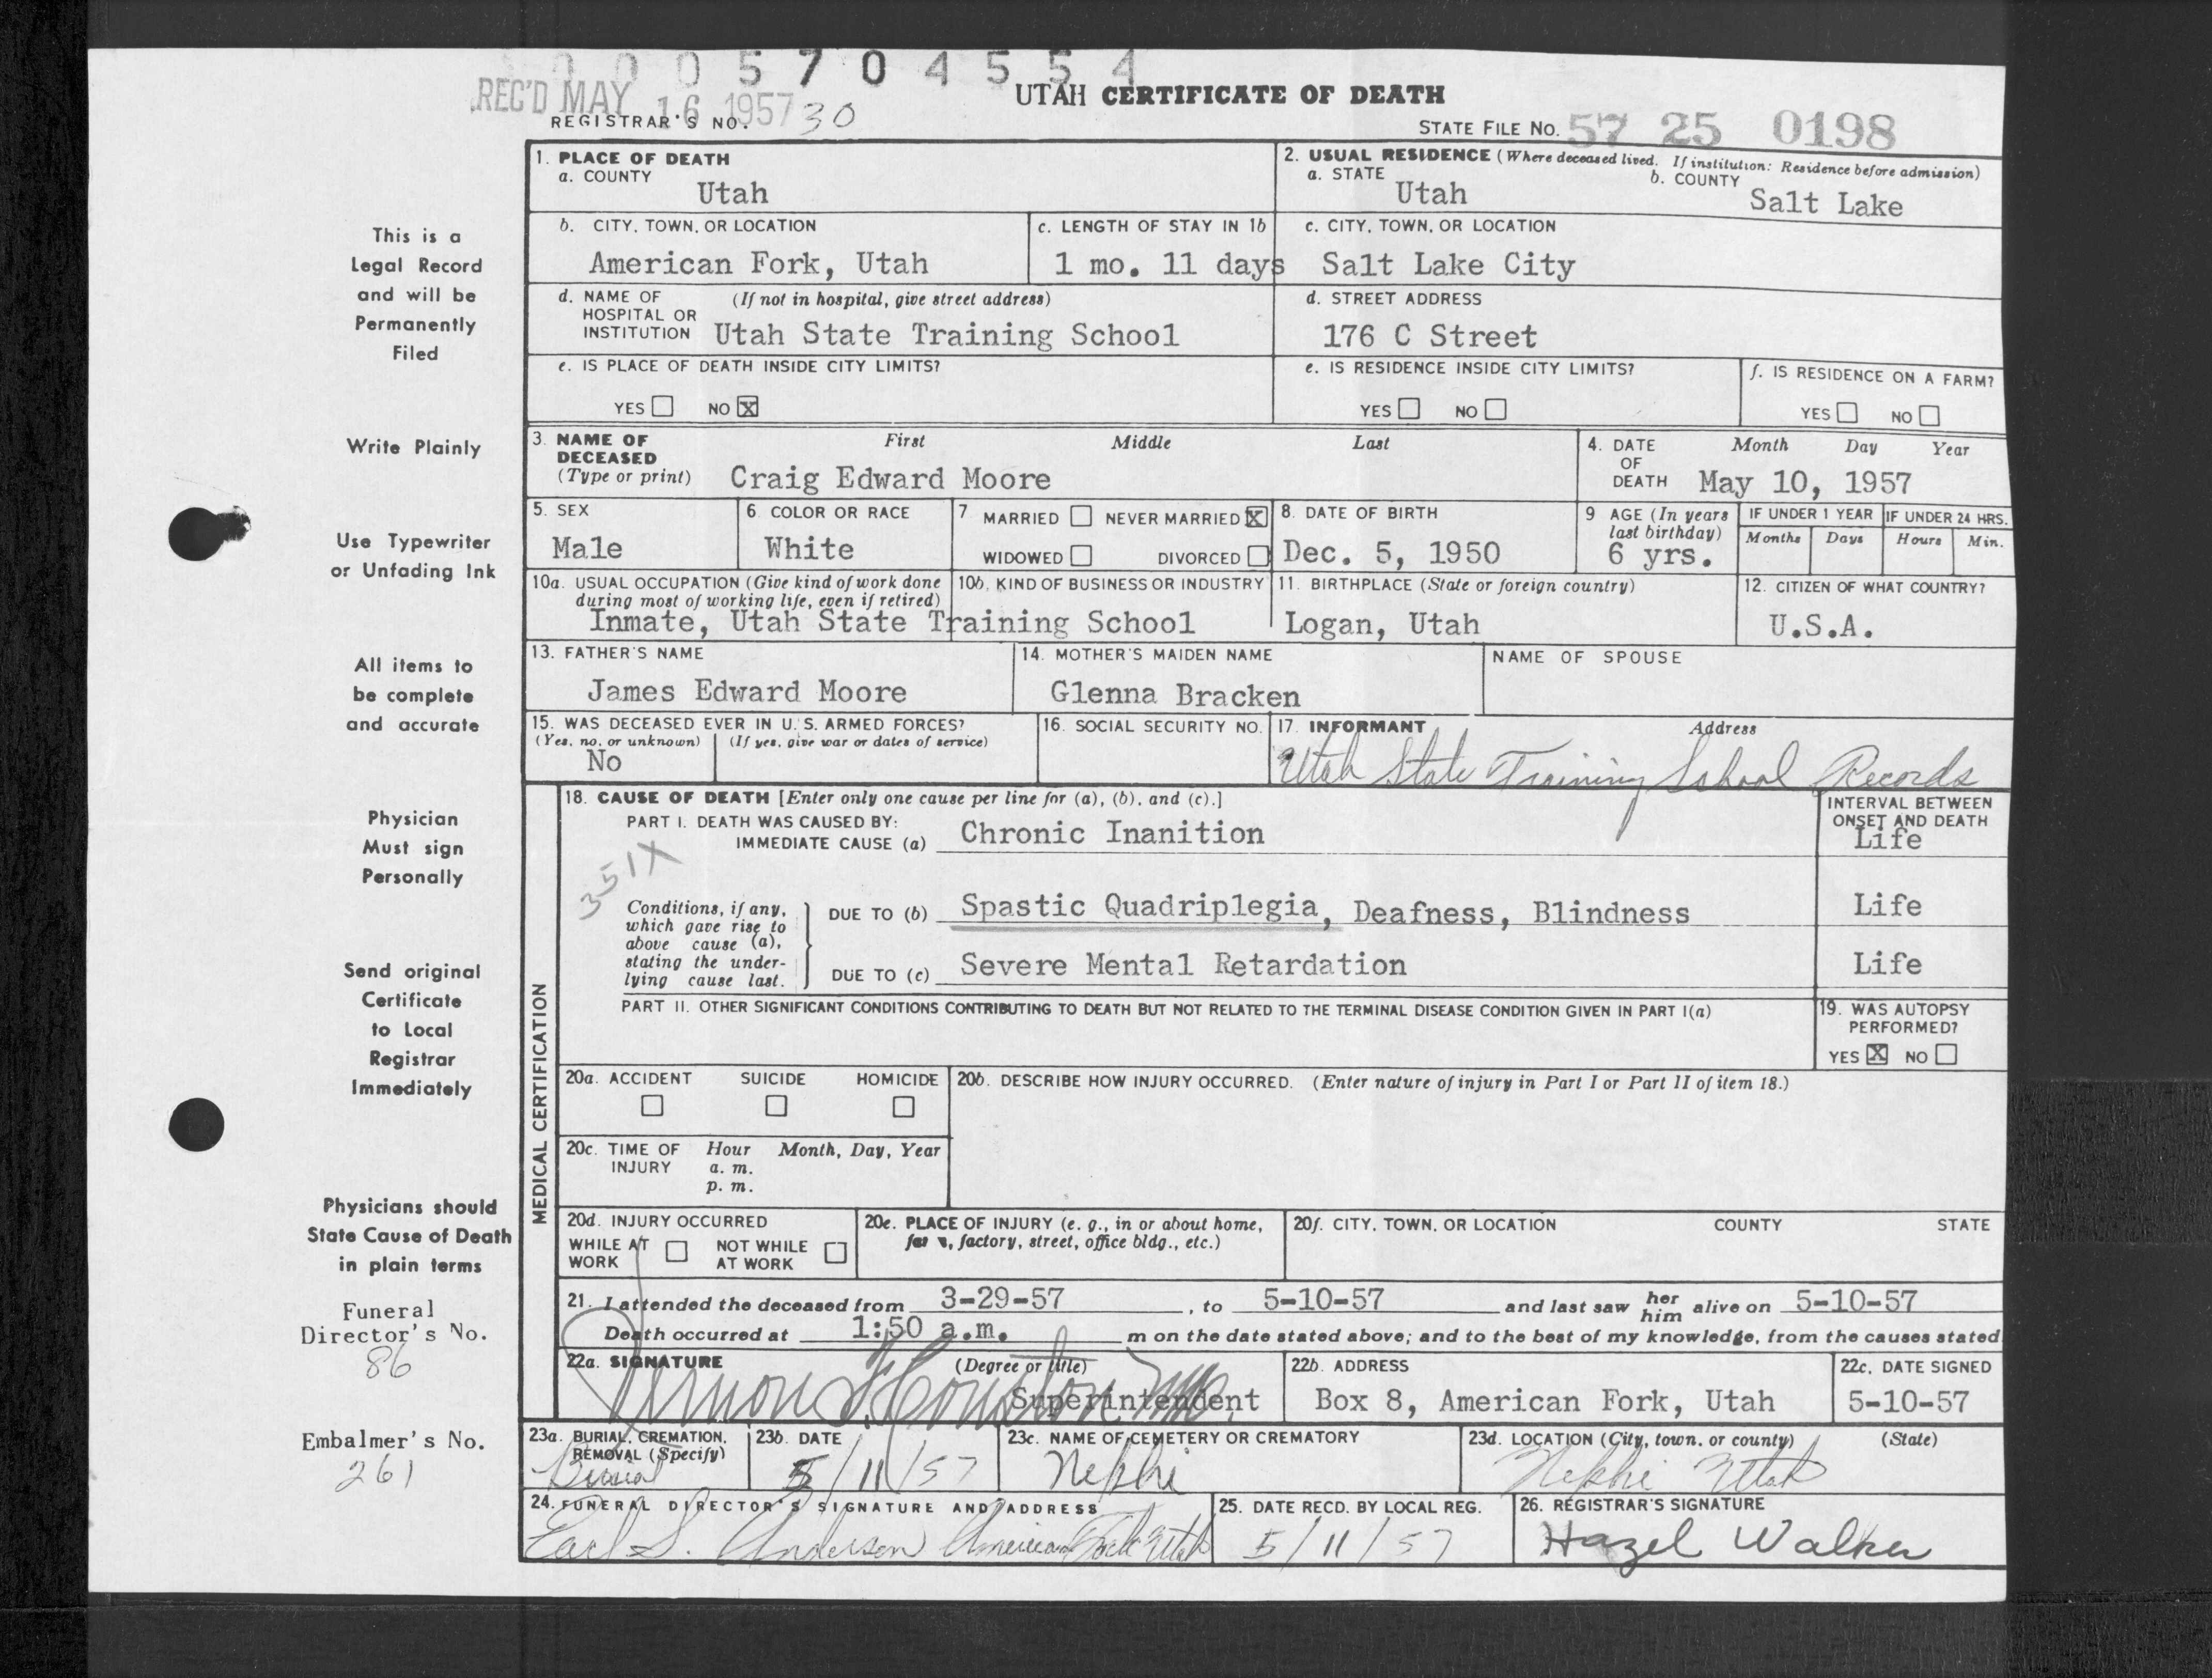 0005704554
REC'D MAY 16 1957
UTAH CERTIFICATE OF DEATH
REGISTRAR'S NO. 30
STATE FILE NO. 57 25 0198
This is a
Legal Record
and will be
Permanently
Filed
Write Plainly
Use Typewriter
or Unfading Ink
All items to
be complete
and accurate
Physician
Must sign
Personally
Send original
Certificate
to Local
Registrar
Immediately
Physicians should
State Cause of Death
in plain terms
Funeral
Director's No.
86
Embalmer's No.
261
1. PLACE OF DEATH
a. COUNTY
Utah
2. USUAL RESIDENCE (Where deceased lived. If institution: Residence before admission)
a. STATE
Utah
b. COUNTY
Salt Lake
b. CITY, TOWN, OR LOCATION
American Fork, Utah
c. LENGTH OF STAY IN 1b
1 mo. 11 days
c. CITY, TOWN, OR LOCATION
Salt Lake City
d. NAME OF (If not in hospital, give street address)
HOSPITAL OR
INSTITUTION Utah State Training School
d. STREET ADDRESS
176 C Street
e. IS PLACE OF DEATH INSIDE CITY LIMITS?
YES NO X
e. IS RESIDENCE INSIDE CITY LIMITS?
YES NO
f. IS RESIDENCE ON A FARM?
YES NO
3. NAME OF DECEASED (Type or print)
First Middle Last
Craig Edward Moore
4. DATE OF DEATH
Month Day Year
May 10, 1957
5. SEX
Male
6. COLOR OR RACE
White
7 MARRIED NEVER MARRIED X
WIDOWED DIVORCED
8. DATE OF BIRTH
Dec. 5, 1950
9 AGE (In years last birthday)
6 yrs.
IF UNDER 1 YEAR
Months Days
IF UNDER 24 HRS.
Hours Min.
10a. USUAL OCCUPATION (Give kind of work done
during most of working life, even if retired)
10b. KIND OF BUSINESS OR INDUSTRY
Inmate, Utah State Training School
11. BIRTHPLACE (State or foreign country)
Logan, Utah
12. CITIZEN OF WHAT COUNTRY?
U.S.A.
13. FATHER'S NAME
James Edward Moore
14. MOTHER'S MAIDEN NAME
Glenna Bracken
NAME OF SPOUSE
15. WAS DECEASED EVER IN U. S. ARMED FORCES?
(Yes, no, or unknown) (If yes, give war or dates of service)
No
16. SOCIAL SECURITY NO.
17. INFORMANT Address
Utah State Training School Records
MEDICAL CERTIFICATION
18. CAUSE OF DEATH [Enter only one cause per line for (a), (b), and (c).]
INTERVAL BETWEEN
ONSET AND DEATH
PART I. DEATH WAS CAUSED BY:
IMMEDIATE CAUSE (a) Chronic Inanition Life
351X
Conditions, if any,
which gave rise to
above cause (a),
stating the under-
lying cause last.
DUE TO (b) Spastic Quadriplegia, Deafness, Blindness Life
DUE TO (c) Severe Mental Retardation Life
PART II. OTHER SIGNIFICANT CONDITIONS CONTRIBUTING TO DEATH BUT NOT RELATED TO THE TERMINAL DISEASE CONDITION GIVEN IN PART I(a)
19. WAS AUTOPSY
PERFORMED?
YES X NO
20a. ACCIDENT SUICIDE HOMICIDE
20b. DESCRIBE HOW INJURY OCCURRED. (Enter nature of injury in Part I or Part II of item 18.)
20c. TIME OF INJURY
Hour Month, Day, Year
a. m.
p. m.
20d. INJURY OCCURRED
WHILE AT WORK
NOT WHILE AT WORK
20e. PLACE OF INJURY (e. g., in or about home,
factory, street, office bldg., etc.)
20f. CITY, TOWN, OR LOCATION COUNTY STATE
21. I attended the deceased from 3-29-57, to 5-10-57 and last saw her him alive on 5-10-57
Death occurred at 1:50 a.m. m on the date stated above; and to the best of my knowledge, from the causes stated
22a. SIGNATURE (Degree or title)
Vernon F. Houston MD. Superintendent
22b. ADDRESS
Box 8, American Fork, Utah
22c. DATE SIGNED
5-10-57
23a. BURIAL, CREMATION,
REMOVAL (Specify)
Burial
23b. DATE
5/11/57
23c. NAME OF CEMETERY OR CREMATORY
Nephi
23d. LOCATION (City, town, or county) (State)
Nephi Utah
24. FUNERAL DIRECTOR'S SIGNATURE AND ADDRESS
Earl S. Anderson American Fork Utah
25. DATE RECD. BY LOCAL REG.
5/11/57
26. REGISTRAR'S SIGNATURE
Hazel Walker